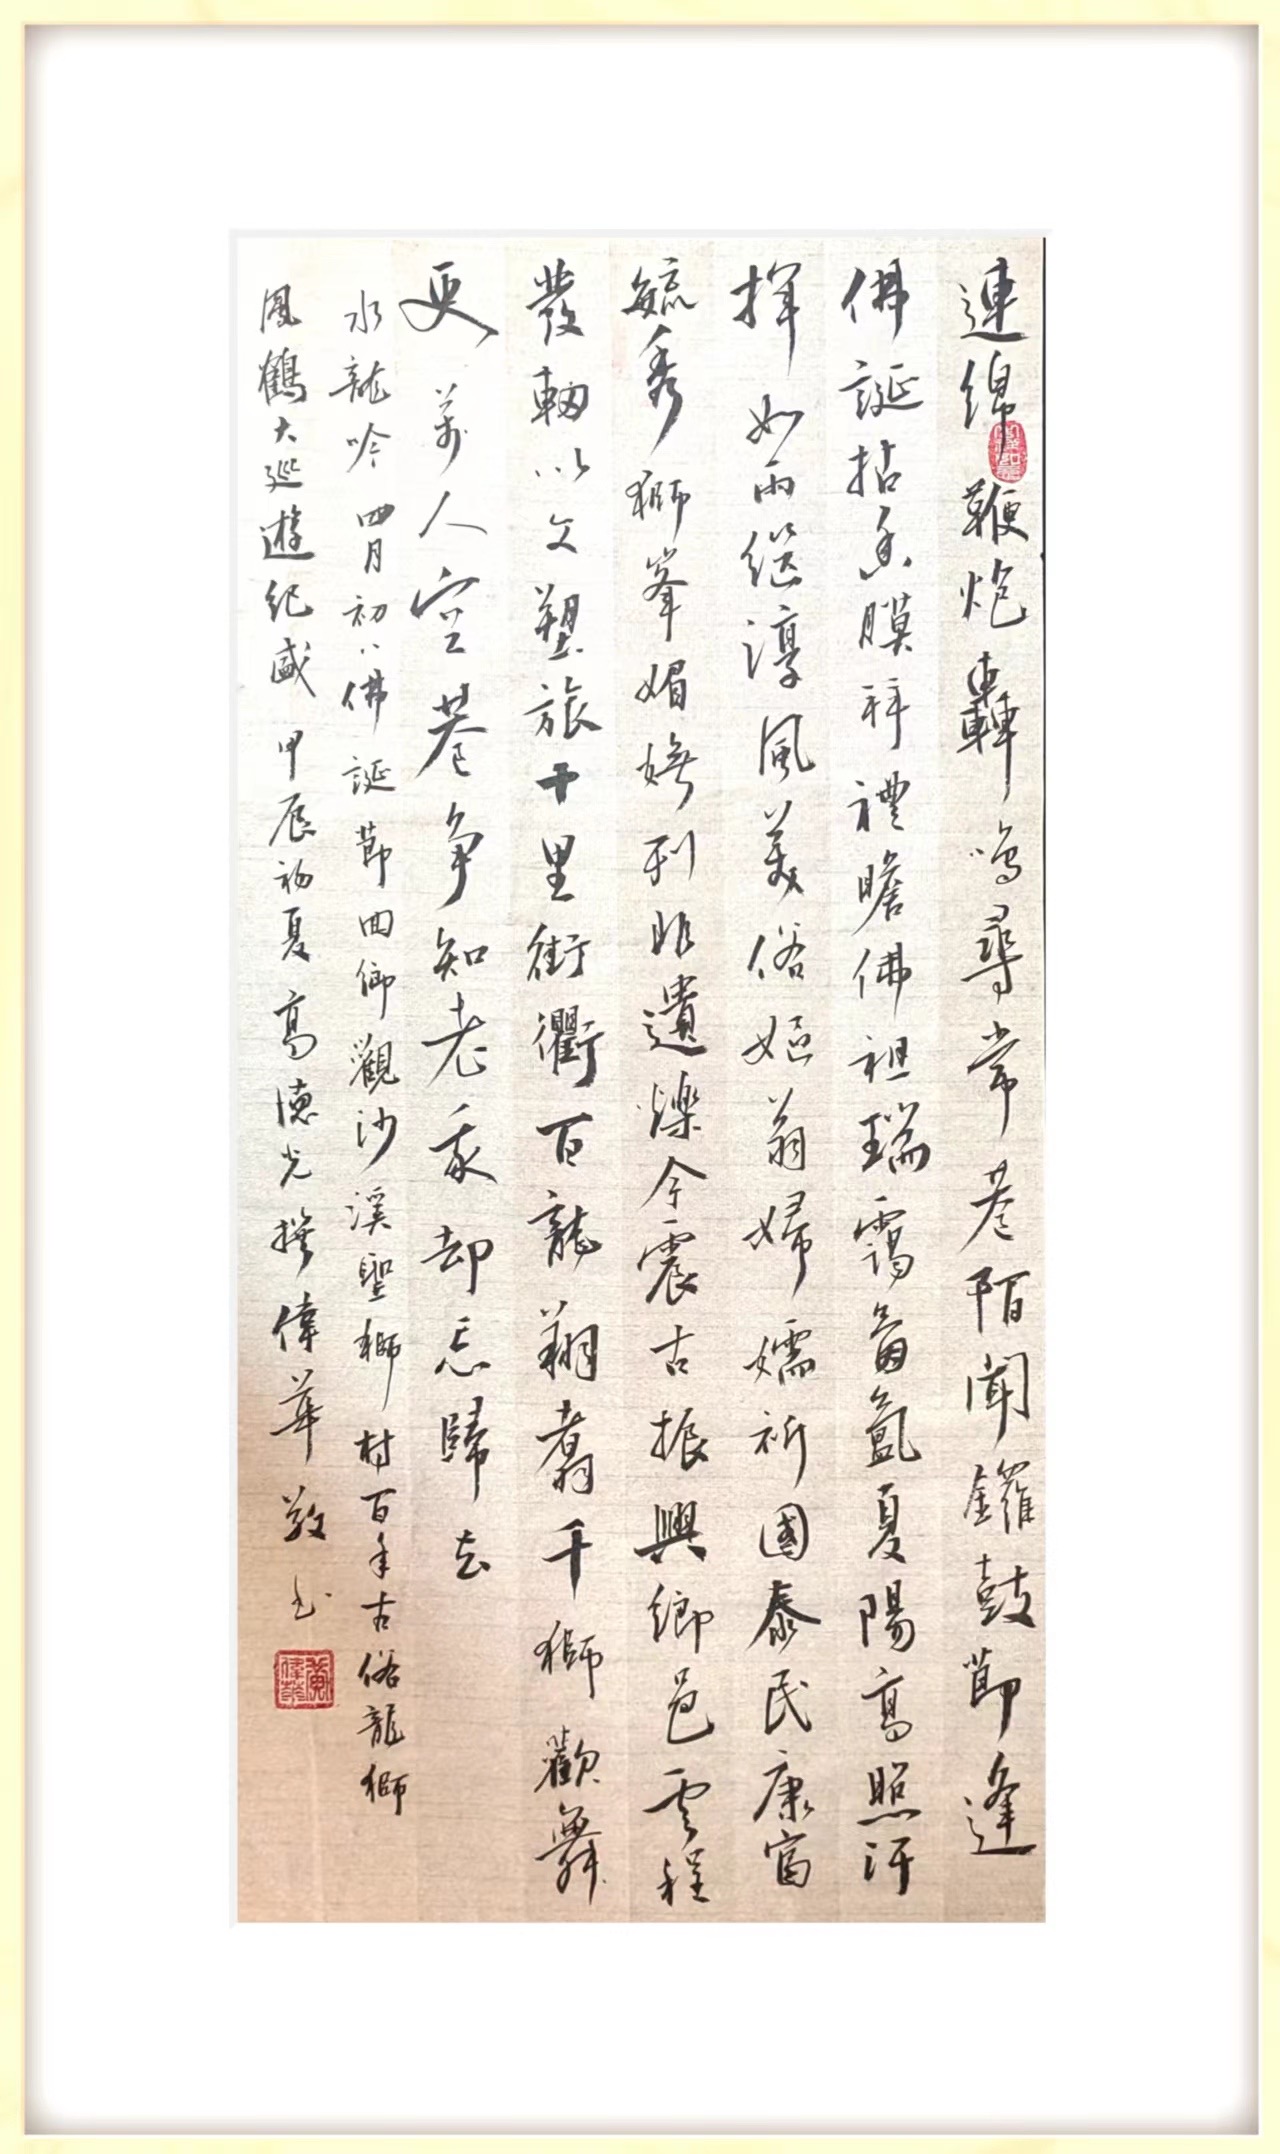 連綿鞭炮轟鳴尋常巷陌聞鑼鼓節逢
佛誕拈香膜拜禮瞻佛祖瑞靄氤氳夏陽高照汗
揮如雨繼淳風美俗嫗翁婦孺祈國泰民康富
毓秀獅峯媚嫵列非遺爍今震古振興鄉邑雲程
發軔以文塑旅十里街衢百龍翔翥千獅歡舞
更萬人空巷爭知老乘却忘歸去
水龍吟 四月初八佛誕節回鄉觀沙溪聖獅村百年古俗龍獅
鳳鶴大巡遊紀盛 甲辰初夏高德光撰偉華敬書